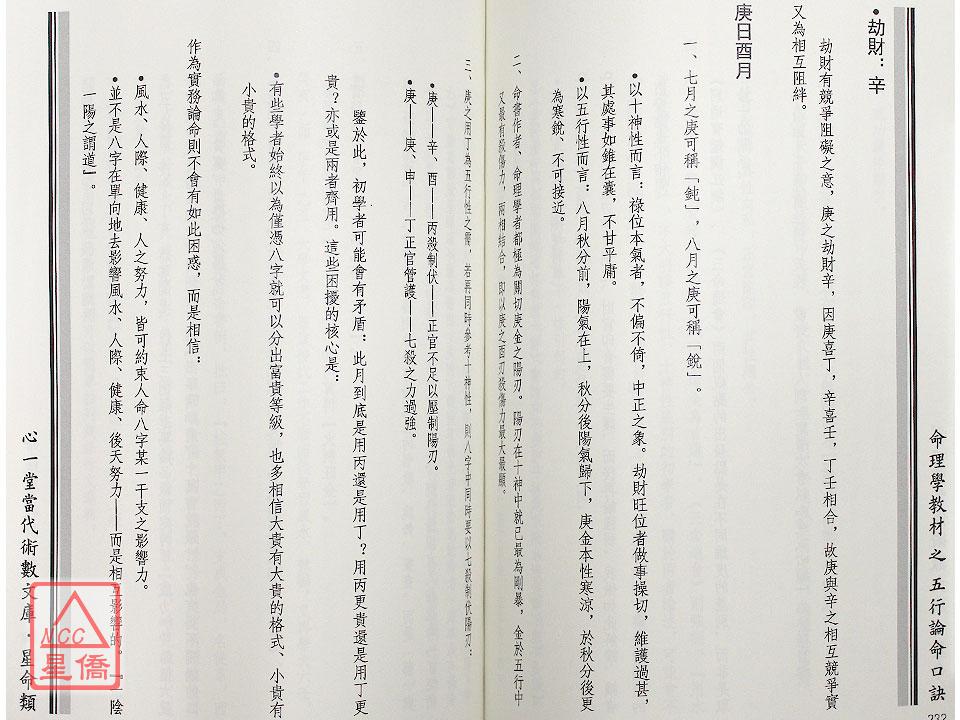 命理學教材 之 五行論命口訣
232
•劫財：辛
劫財有競爭阻礙之意，庚之劫財辛，因庚喜丁，辛喜壬，丁壬相合，故庚與辛之相互競爭實
又為相互阻絆。
庚日酉月
一、七月之庚可稱「鈍」，八月之庚可稱「銳」。
•以十神性而言：祿位本氣者，不偏不倚，中正之象。劫財旺位者做事操切，維護過甚，
其處事如錐在囊，不甘平庸。
•以五行性而言：八月秋分前，陽氣在上，秋分後陽氣歸下，庚金本性寒涼，於秋分後更
為寒銳、不可接近。
二、命書作者、命理學者都極為關切庚金之陽刃。陽刃在十神中就已最為剛暴，金於五行中
又最有殺傷力，兩相結合，即以庚之酉刃殺傷力最大最顯。
三、庚之用丁為五行性之需，若再同時參考十神性，則八字中同時要以七殺制伏陽刃：
•庚——辛、酉——丙殺制伏——正官不足以壓制陽刃。
•庚——庚、申——丁正官管護——七殺之力過強。
鑒於此，初學者可能會有矛盾：此月到底是用丙還是用丁？用丙更貴還是用丁更
貴？亦或是兩者齊用。這些困擾的核心是：
•有些學者始終以為僅憑八字就可以分出富貴等級，也多相信大貴有大貴的格式、小貴有
小貴的格式。
作為實務論命則不會有如此困惑，而是相信：
•風水、人際、健康、人之努力，皆可約束人命八字某一干支之影響力。
•並不是八字在單向地去影響風水、人際、健康、後天努力——而是相互影響的。『一陰
一陽之謂道』。
心一堂當代術數文庫・星命類
NCC
星僑